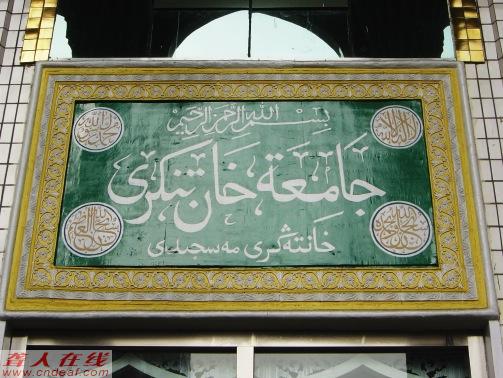 بسم الله الرحمن الرحيم
لا اله الا الله
جامعة خان تنكرى
خانتەڭرى مەسجىدى
聋人在线
www.cndeaf.com